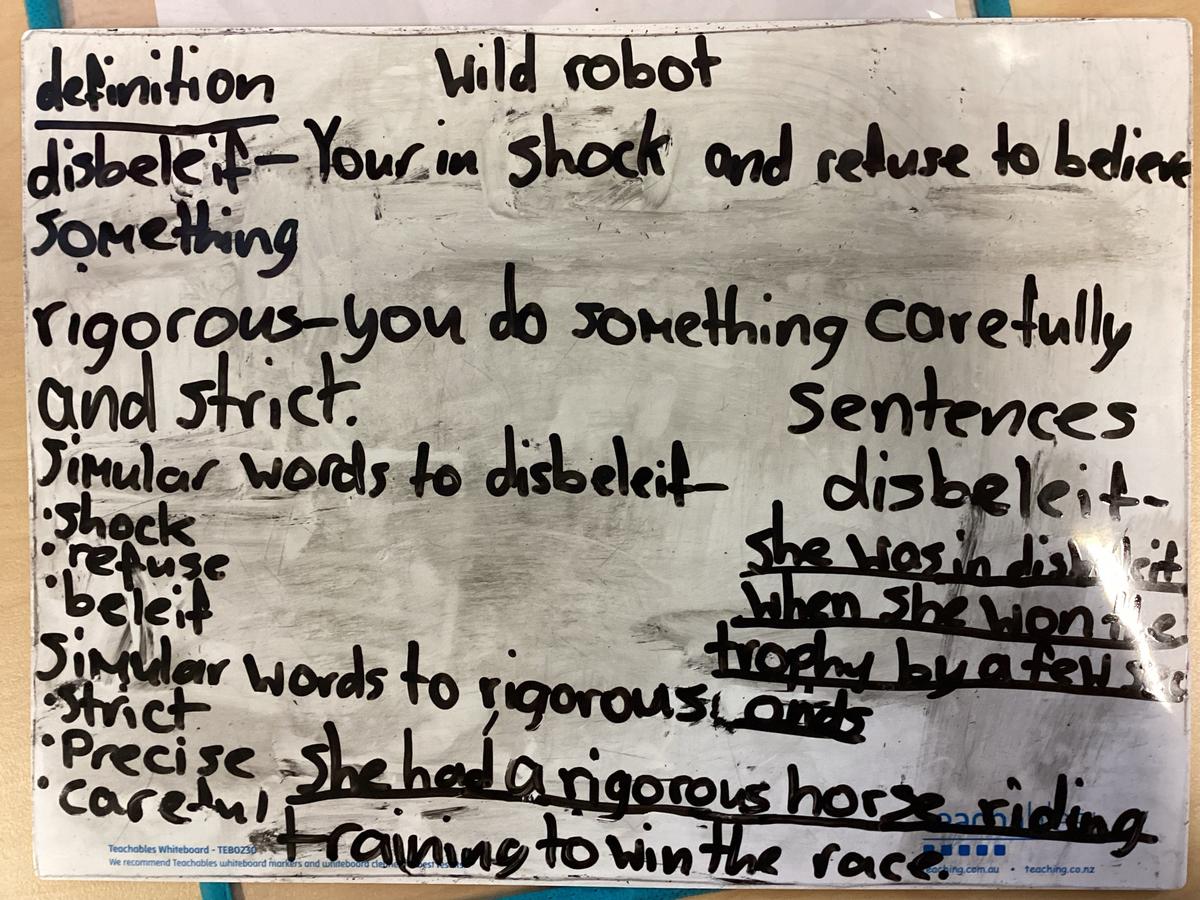 definition
Wild robot
disbeleif - Your in shock and refuse to believe
something
rigorous - you do something carefully
and strict.
Simular words to disbeleif -
• shock
• refuse
• beleif
Simular words to rigorous:
• strict
• Precise
• careful
sentences
disbeleif -
She was in disbeleif
when she won the
trophy by a few sec
onds
She had a rigorous horse riding
training to win the race.
Teachables Whiteboard - TEB0230
We recommend Teachables whiteboard markers and whiteboard cleaner
teaching.com.au • teaching.co.nz